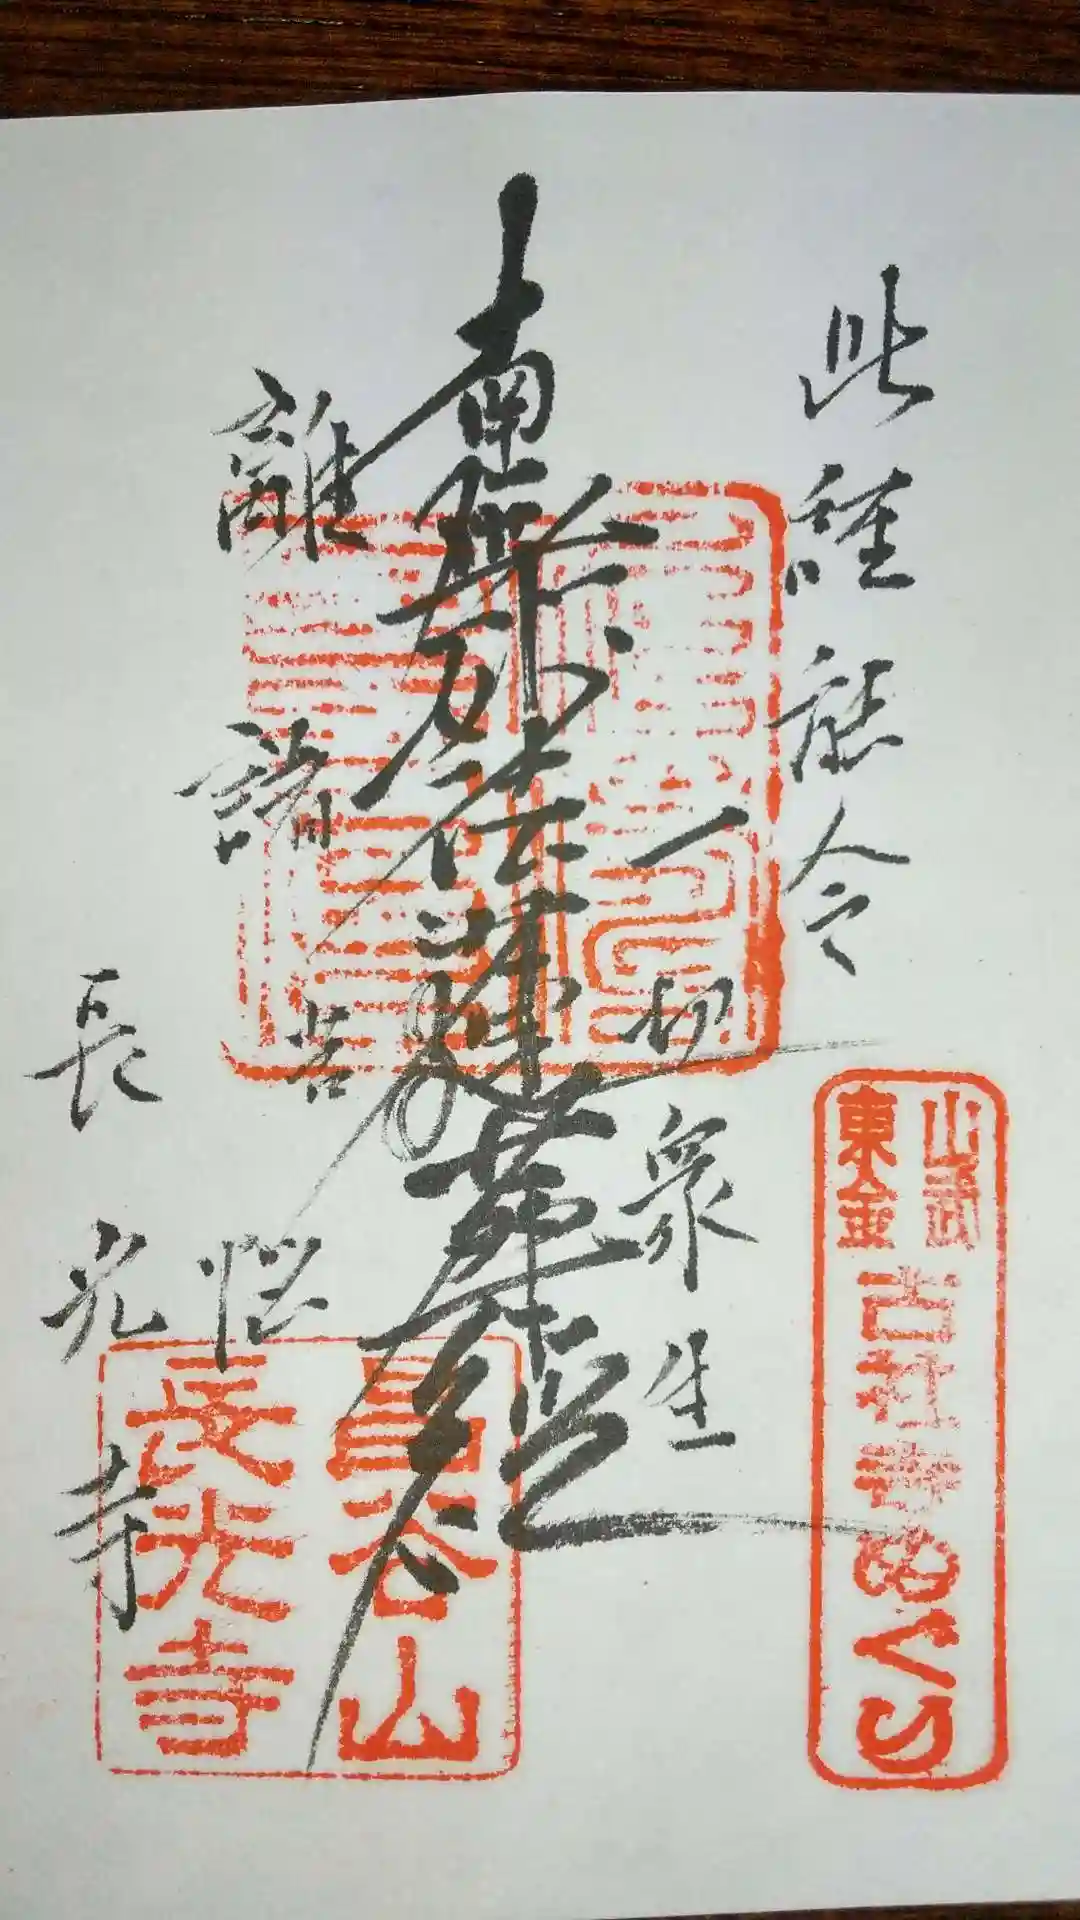 此経能令
一切衆生
南無妙法蓮華経
離諸苦悩
長光寺
山武
東金
古社寺めぐり
長光寺
谷山